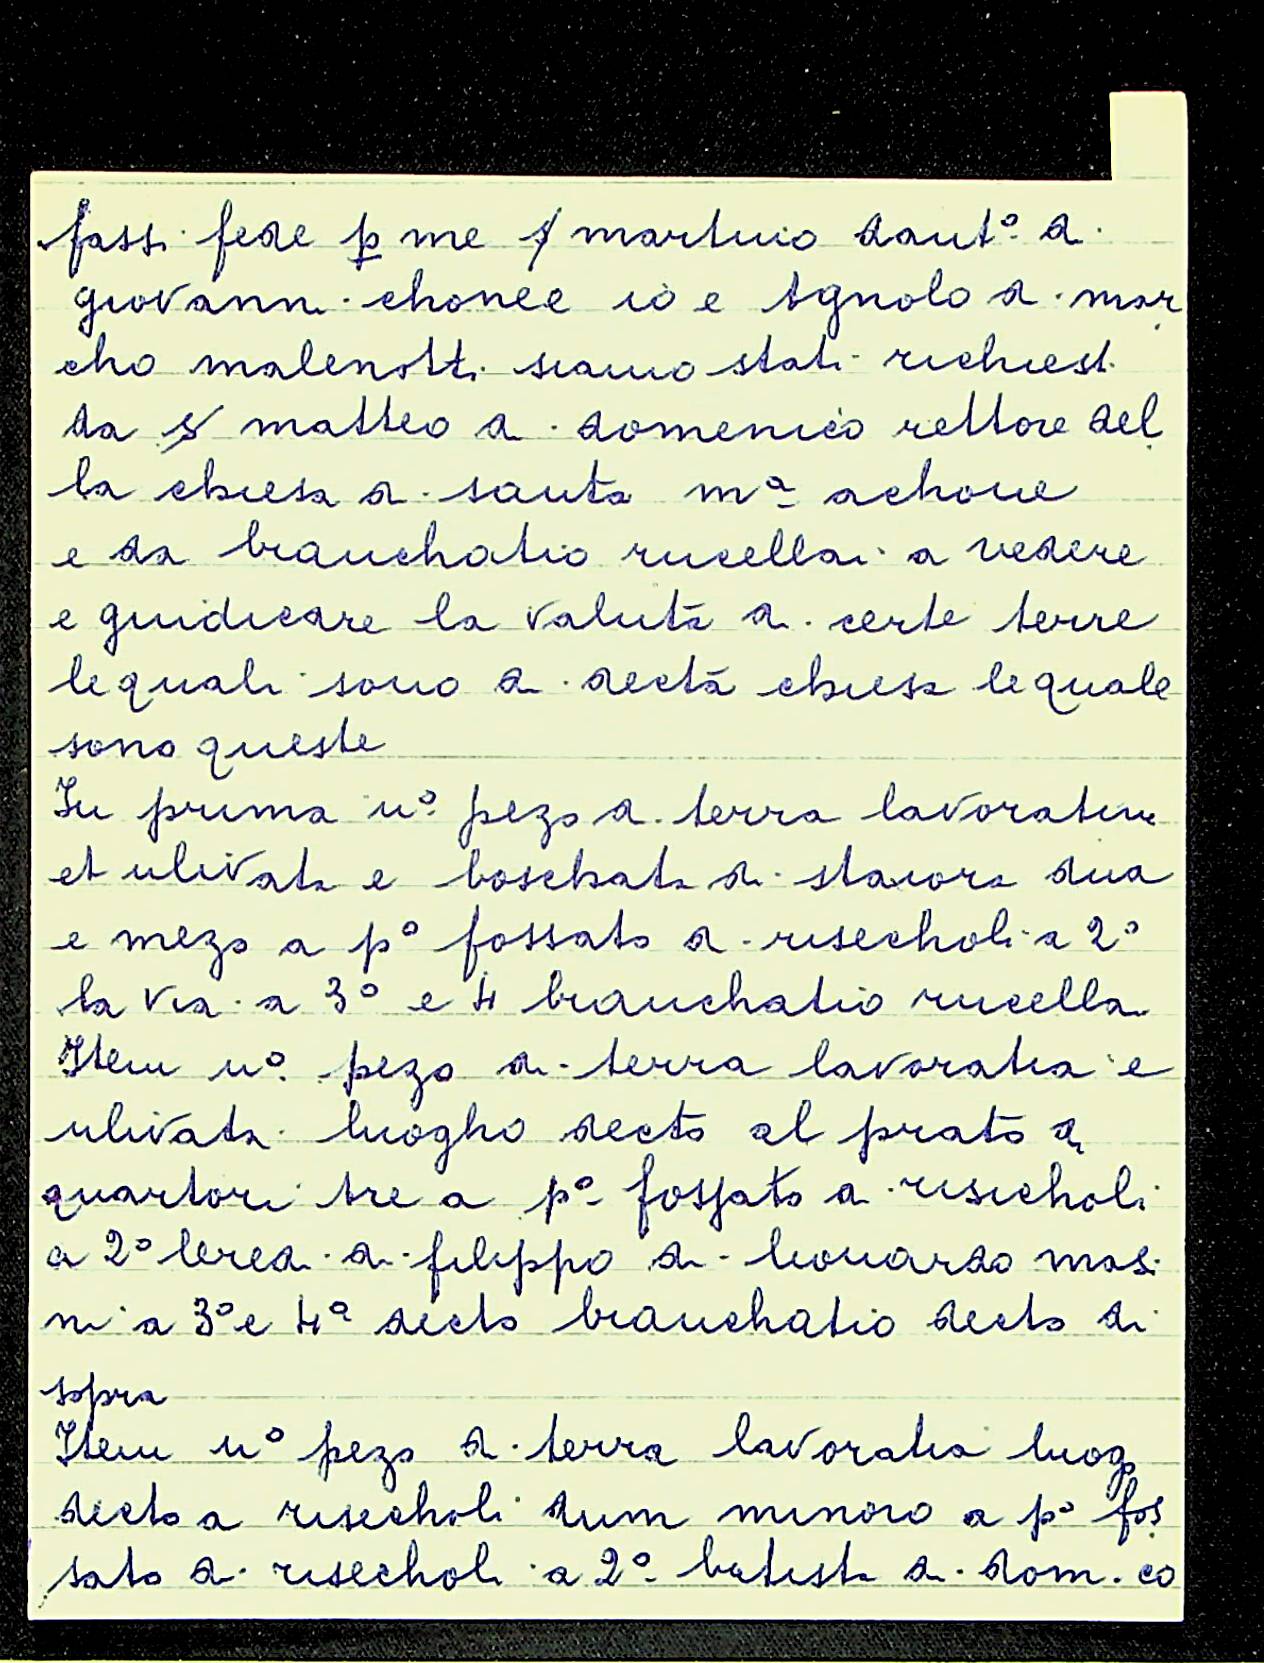 fassi fede p me s martino dant° di
giovanni chonee io e Agnolo di mar
cho malenotti siamo stati richiesti
da s matteo di domenico rettore del
la chiesa di santa mª achone
e da branchatio rucellai a vedere
e giudicare la valuta di certe terre
le quali sono di decta chiesa le quale
sono queste
In prima n° pezo di terra lavoratia
et ulivata e boschata di staiora dua
e mezo a p° fossato di risecholi a 2°
la via a 3° e 4 branchatio rucellai
Item n° pezo di terra lavoratia e
ulivata luogho decto al prato di
quartori tre a p° fossato di risicholi
a 2° lered di filippo di lionardo masi
ni a 3° e 4ª decto branchatio decto di
sopra
Item n° pezo di terra lavoratia luog
decto a risecholi dum minoro a p° fos
sato di risecholi a 2° batista di dom. co